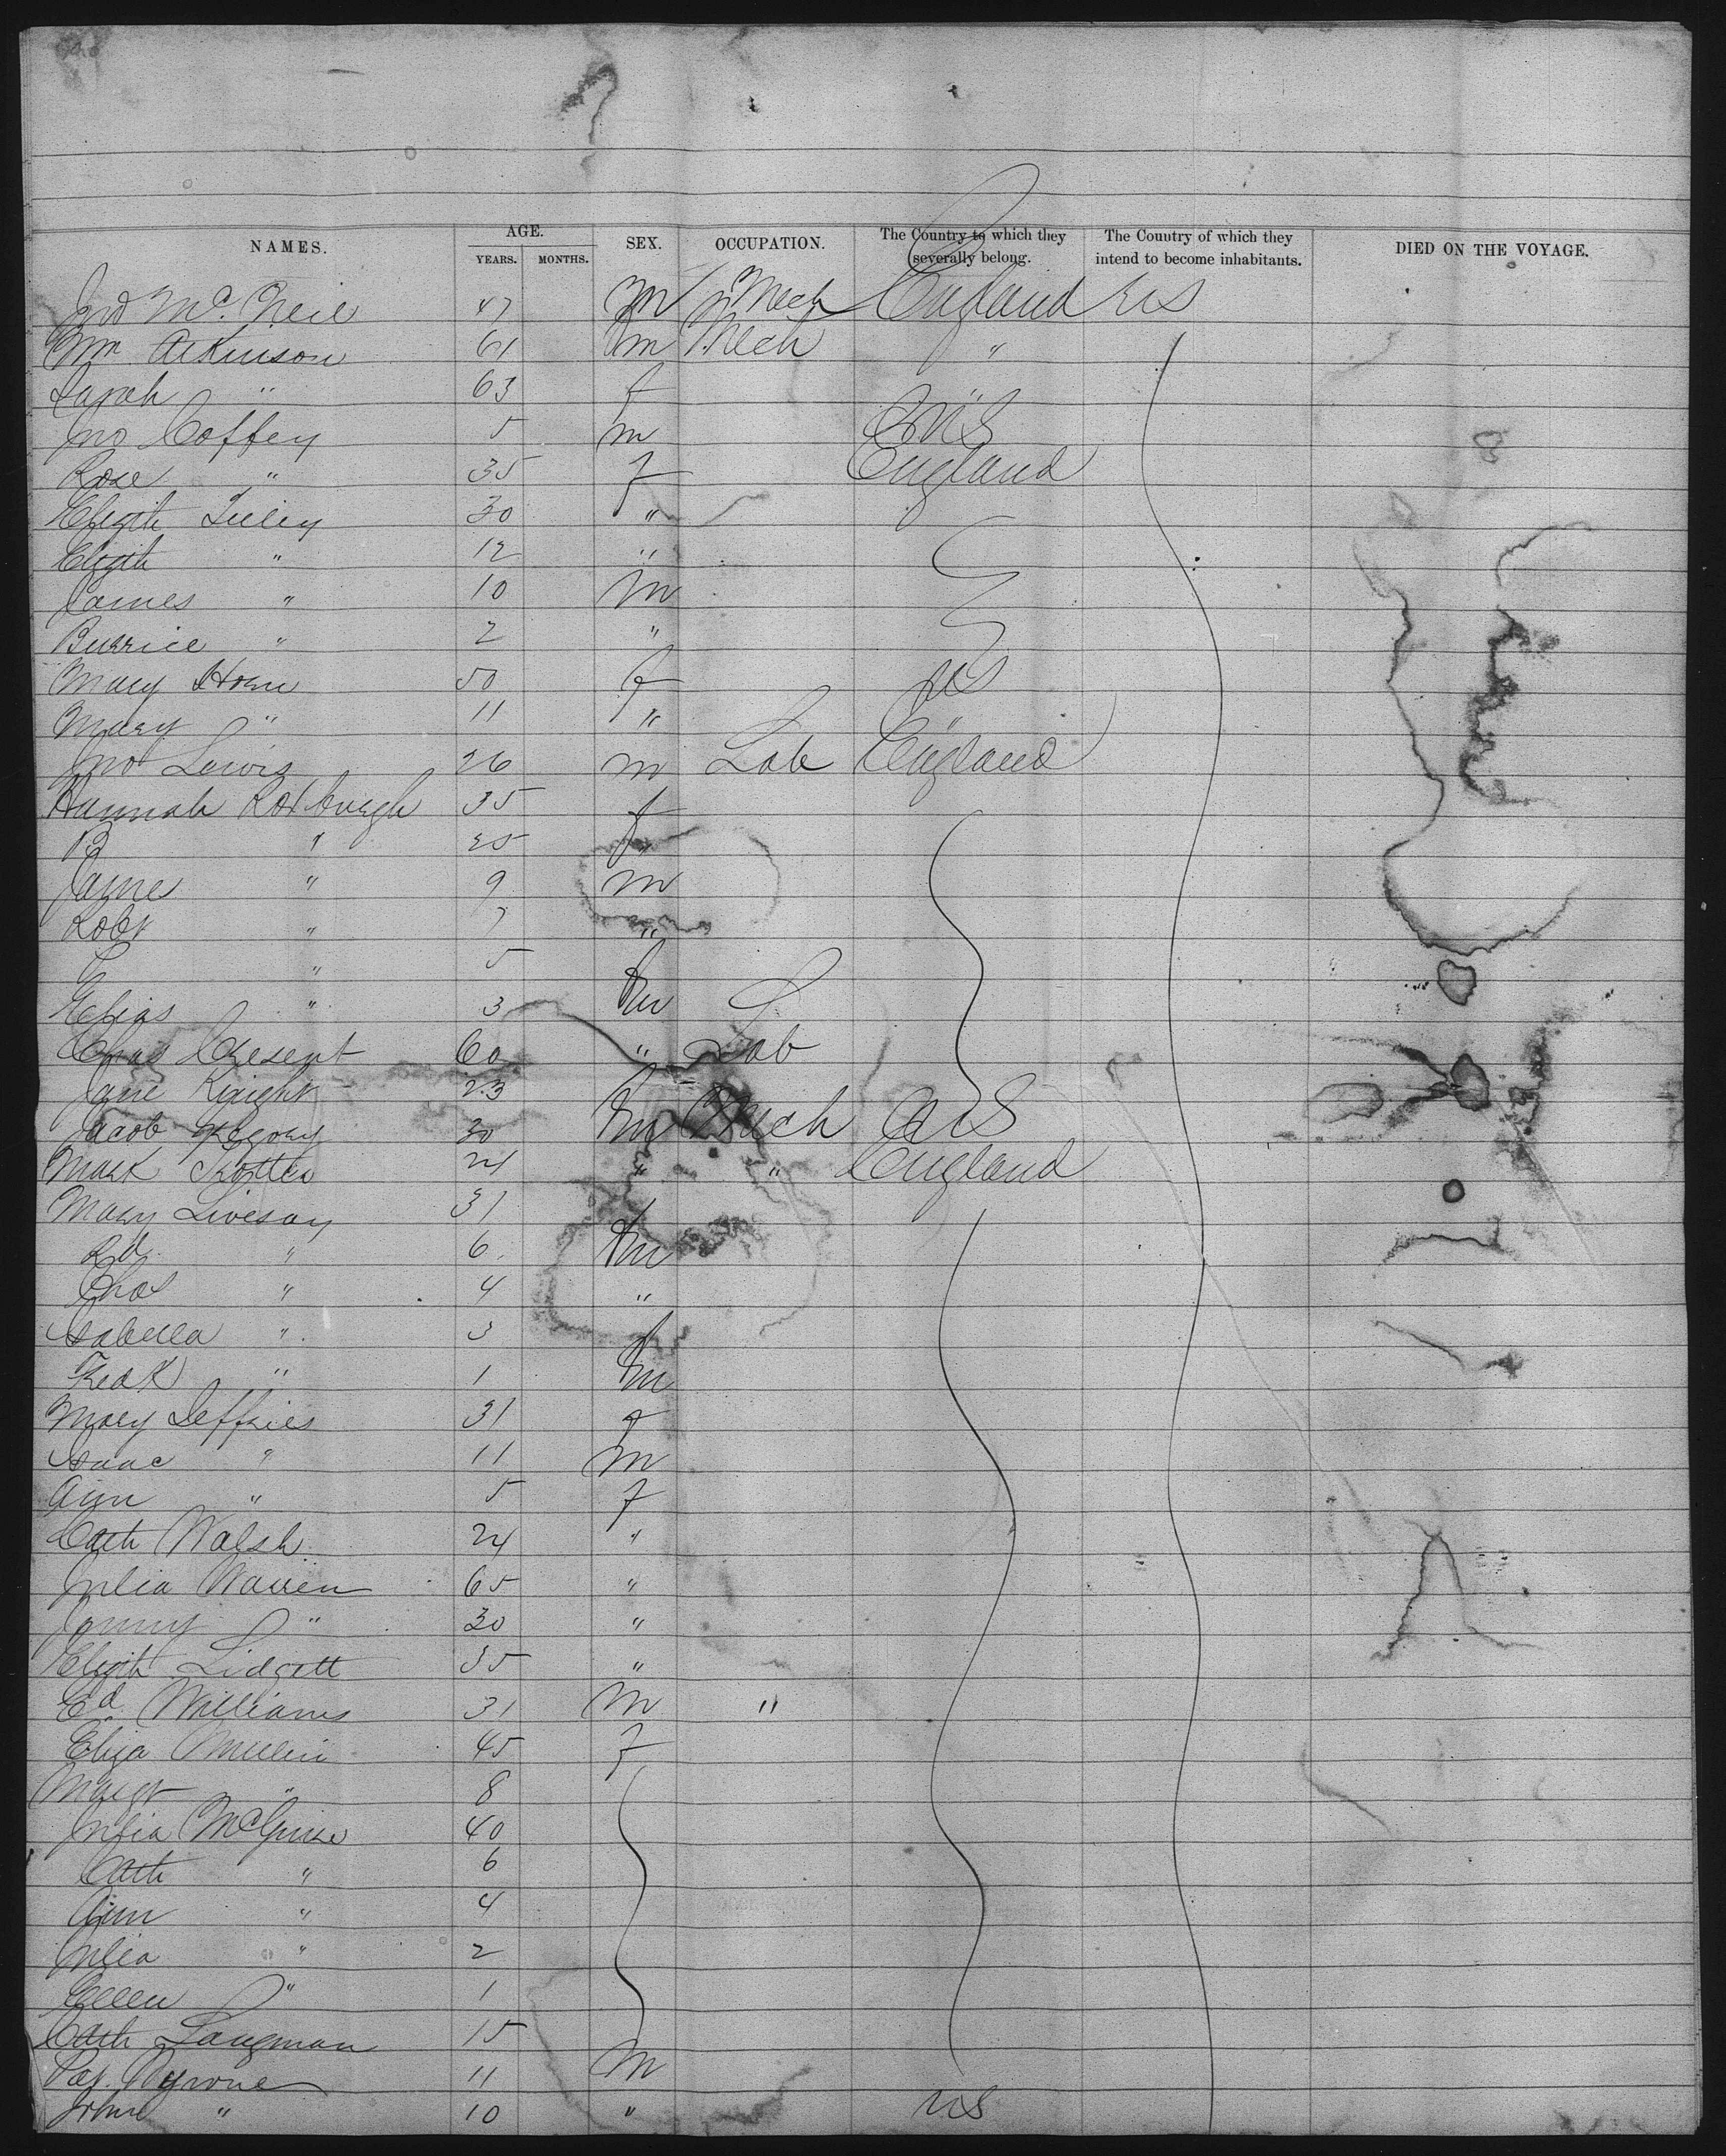 NAMES. AGE. YEARS. MONTHS. SEX. OCCUPATION. The Country to which they severally belong. The Country of which they intend to become inhabitants. DIED ON THE VOYAGE.
Jno McNeil 47 m Mech England US
Wm Atkinson 61 m Mech "
Sarah " 63 f "
Jno Coffey 5 m US
Rose " 35 f England
Elizth 30 "
Elizth " 12 "
James " 10 m
" 2 "
Mary Horn 50 f US
Mary " 11 " "
Jno Lewis 26 m Lab England
Hannah Roxburgh 35 f
" 25 f
James " 9 m
Robt " 7 "
" 5
Elias " 3 m
Chas 60 " Lab
Jane Knight 23
Jacob Gregory 30 m Mech US
Mark 24 " " England
Mary Livesay 31
Rd " 6 m
Chas " 4 "
Isabella " 3 f
Fredk " 1 m
Mary Jeffries 31 f
Isaac " 11 m
Ann " 5 f
Cath Walsh 24 "
Julia Warren 65 "
" 30 "
Elizth Lidgett 35 "
Ed Williams 31 m "
Eliza Mullin 45 f
Margt " 8
Julia McGuire 40
Cath " 6
Ann " 4
Julia " 2
Ellen " 1
Cath Langman 15
Pat 11 m
John " 10 " US